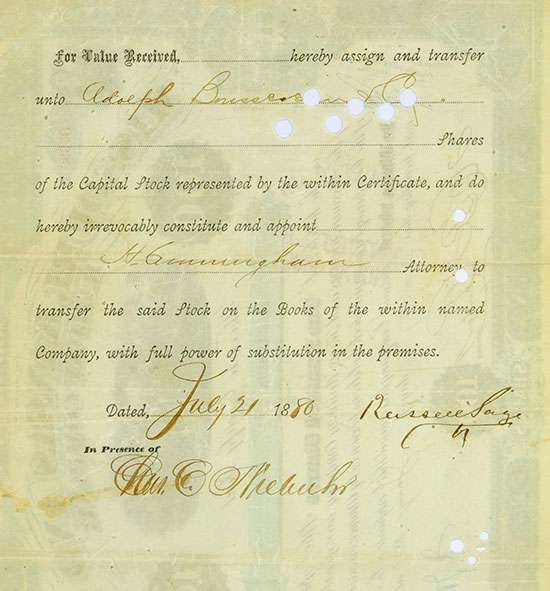 For Value Received, hereby assign and transfer
unto Adolph & Co.
Shares
of the Capital Stock represented by the within Certificate, and do
hereby irrevocably constitute and appoint
H. Cunningham Attorney to
transfer the said Stock on the Books of the within named
Company, with full power of substitution in the premises.
Dated, July 21 1880 Russell Sage
In Presence of
Chas. C. Niebuhr